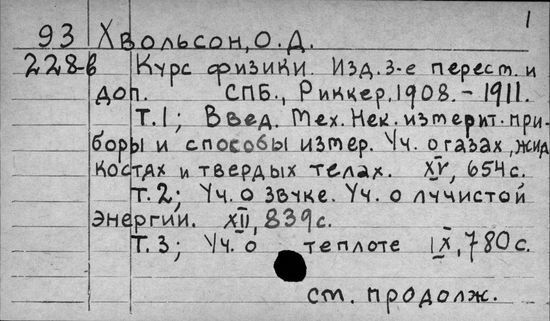 1
93 Хвольсон, О.Д.
228-в Курс физики. Изд. 3-е перест. и
доп. СПБ., Риккер, 1908. - 1911.
Т. 1; Введ. Мех. Нек. измерит. при-
боры и способы измер. Уч. о газах, жид
костях и твердых телах. XV, 654 с.
Т. 2; Уч. о звуке. Уч. о лучистой
энергии. XII, 839 с.
Т. 3; Уч. о теплоте IX, 780 с.
см. продолж.